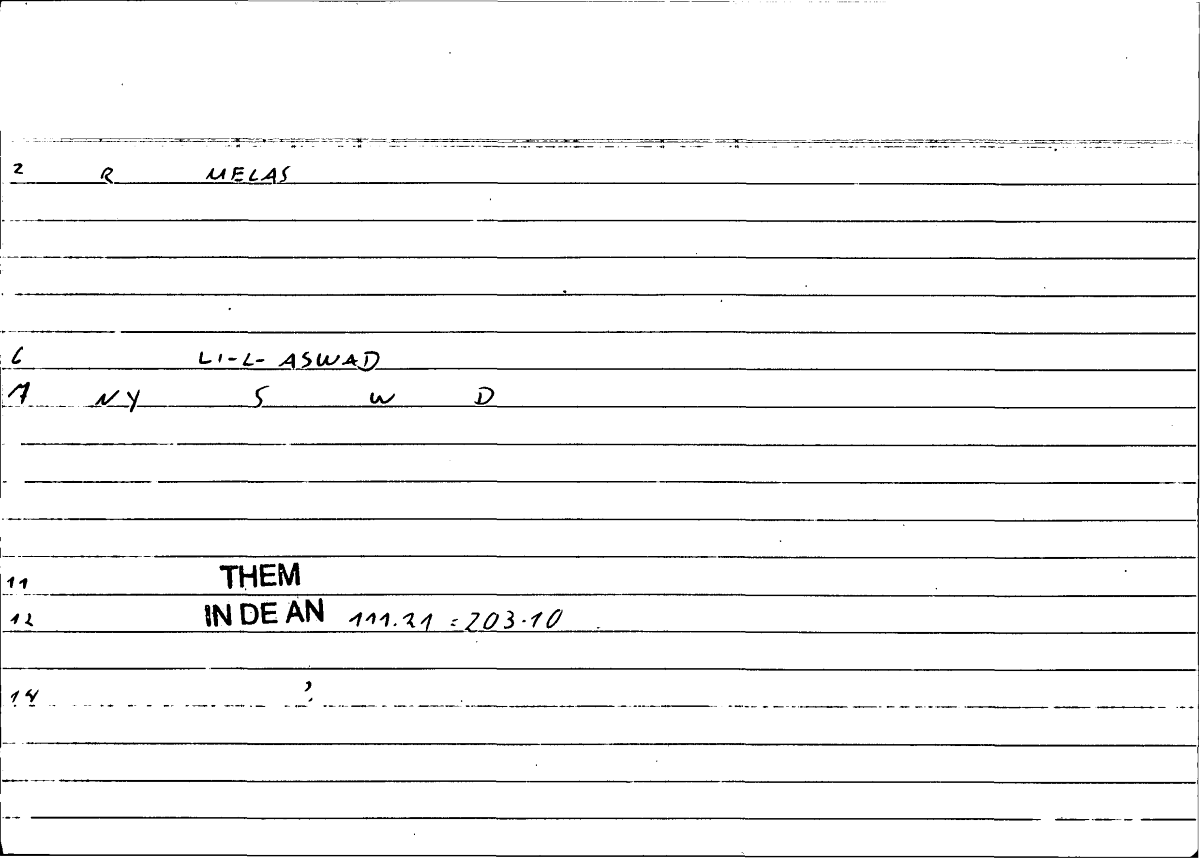 2 R MELAS
6 LI-L-ASWAD
7 NY S W D
11 THEM
12 IN DE AN 111.21 = 203.10
14 ?